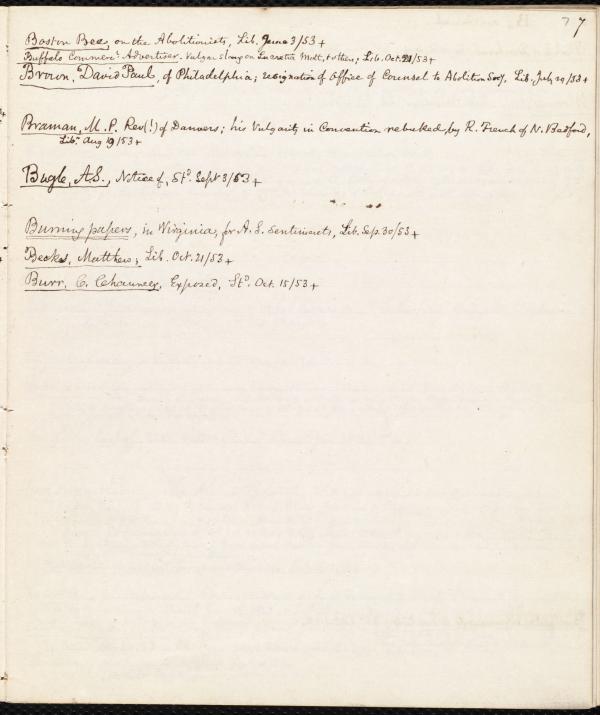 7 7
Boston Bee, on the Abolitionists, Lib. June 3/53 +
Buffalo Commerc'l Advertiser. Vulgar slang on Lucretia Mott, & others; Lib. Oct. 21/53 +
Brown, David Paul, of Philadelphia; resignation of Office of Counsel to Abolition Socy, Lib. July 29/53 +
Braman, M. P. Rev(!) of Danvers; his Vulgarity in Convention rebuked by R. French of N. Bedford,
Lib. Aug 19/53 +
Bugle, A.S., Notice of, Std. Sept 3/53 +
Burning papers, in Virginia, for A. S. Sentiments, Lib. Sep. 30/53 +
Becks, Matthew; Lib. Oct. 21/53 +
Burr, C. Chauncey, Exposed, Std. Oct. 15/53 +